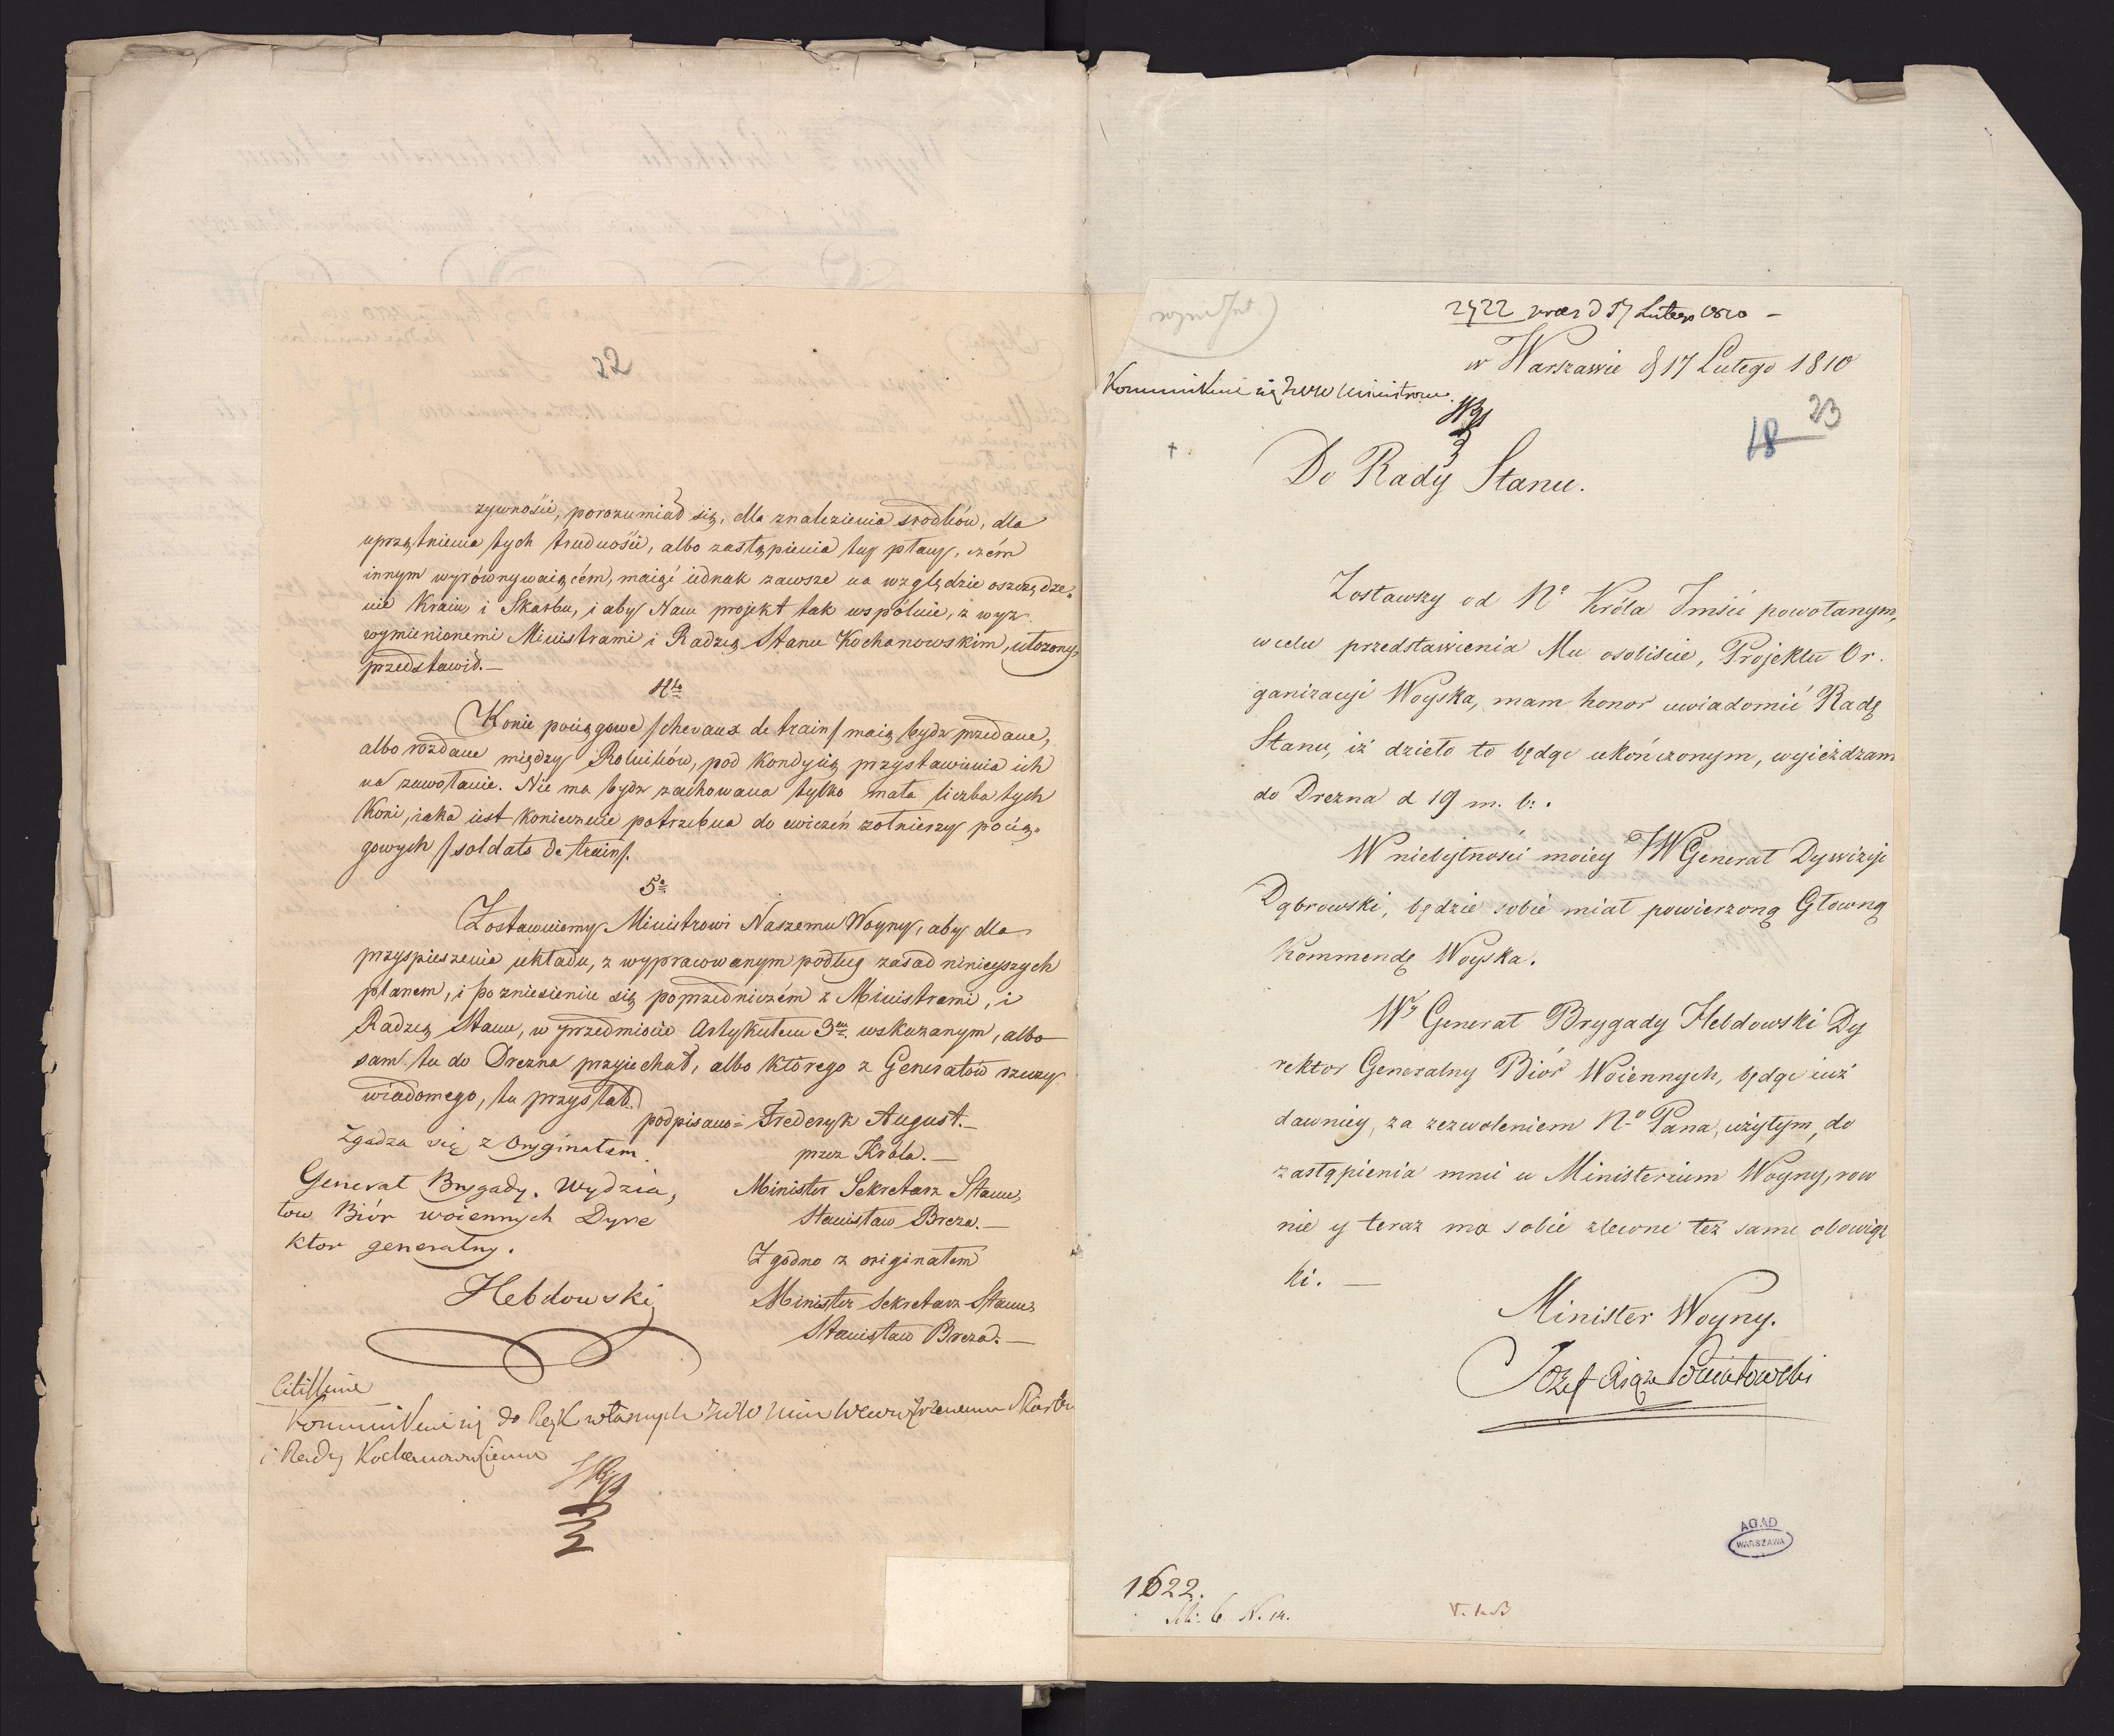 22
zywnośći, porozumiał się, dla znalezienia srodków, dla
uprzątnienia tych trudnośći, albo zastąpienia tey płacy, czém
innym wyrównywaiącém, maiąć iednak zawsze na względzie oszczędze,
nie Kraiu, i Skarbu, i aby Nam projekt tak wspólnie, z wyz
wymienionemi Ministrami i Radzcą Stanu Kochanowskim, ułożony,
przedstawił.—
4to
Konie pociągowe /chevaux de train/ maią bydz przedane,
albo rozdane między Rolników, pod Kondycią przystawienia ich
na zawołanie. Nie ma bydz zachowana tylko mała liczba tych
Koni, iaka iest koniecznie potrzebna do cwiczeń zołnierzy pocią,
gowych /soldats de train/.
5o
Zostawuiemy Ministrowi Naszemu Woyny, aby dla
przyspieszenia układu, z wypracowanym podług zasad ninieyszych
planem, i po zniesieniu się poprzedniczém z Ministrami, i
Radzcą Stanu, w przedmiocie Artykułem 3m wskazanym, albo
sam tu do Drezna przyiechał, albo którego z Generałów rzeczy
wiadomego, tu przysłał.
podpisano= Frederyk August.—
przez Króla.—
Minister Sekretarz Stanu,
Stanisław Breza.—
Zgodno z originałem
Minister Sekretarz Stanu,
Stanisław Breza.—
Zgadza się z Oryginałem.
Generał Brygady. Wydzia,
łow Biór woiennych Dyre
ktor generalny.
Hebdowski
Citissime
Kommunikuie się do Rąk własnych
i Radcy Kochanowskiemu
2722 prаes d 17 Lutego 1810 –
w Warszawie d 17 Lutego 1810
Kommunikuie się Ministrom.
18 23
Do Rady Stanu.
Zostawszy od No Króla Jmśći powołanym,
w celu przedstawienia Mu osobiscie, Projektu Or.
ganizacyi Woyska, mam honor uwiadomić Radę
Stanu, iż dzieło to będąc ukończonym, wyieżdzam
do Drezna d 19 m. b:.
W niebytnośći moiey JW Generał Dywizyi
Dąbrowski, będzie sobie miał powierzoną Głowną
Kommendę Woyska.
Wy Generał Brygady Hebdowski Dy
rektor Generalny Biór Woiennych, będąc iuż
dawniey, za zezwoleniem No Pana, użytym, do
zastąpienia mnie w Ministerium Woyny, row
nie y teraz ma sobie zlecone też same obowiąz
ki. —
Minister Woyny.
Jozef Xiąze Poniatowski
AGAD
WARSZAWA
1622.
6 N. 14.